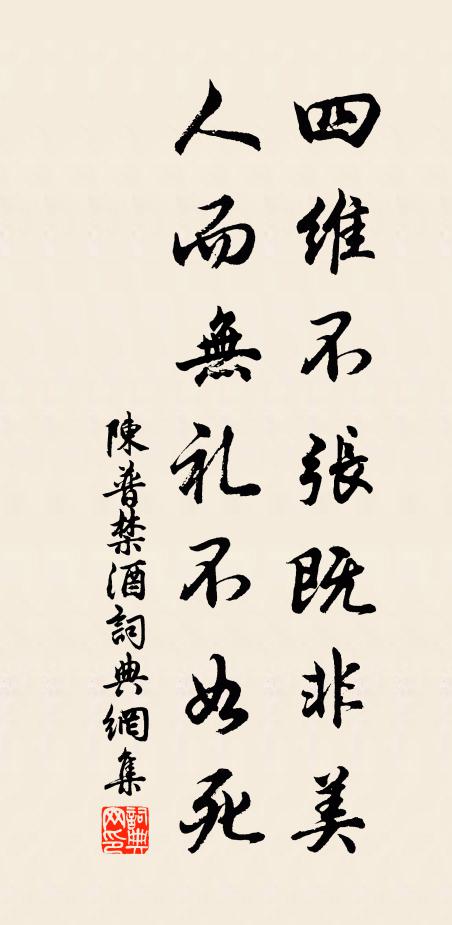 四維不張既非美
人而無礼不如死
陳普禁酒詞典網集
詞典
网印